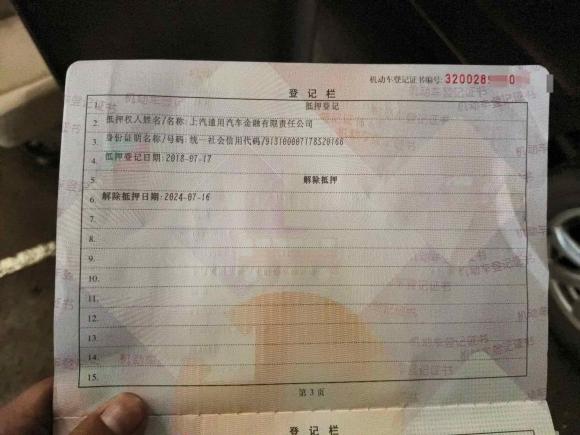 机动车登记证书编号: 320028 0
登 记 栏
1. 抵押登记
2. 抵押权人姓名/名称:上汽通用汽车金融有限责任公司
3. 身份证明名称/号码:统一社会信用代码/913100007178520166
4. 抵押登记日期:2018-07-17
5. 解除抵押
6. 解除抵押日期:2024-07-16
7.
8.
9.
10.
11.
12.
13.
14.
15.
第 3 页
登 记 栏